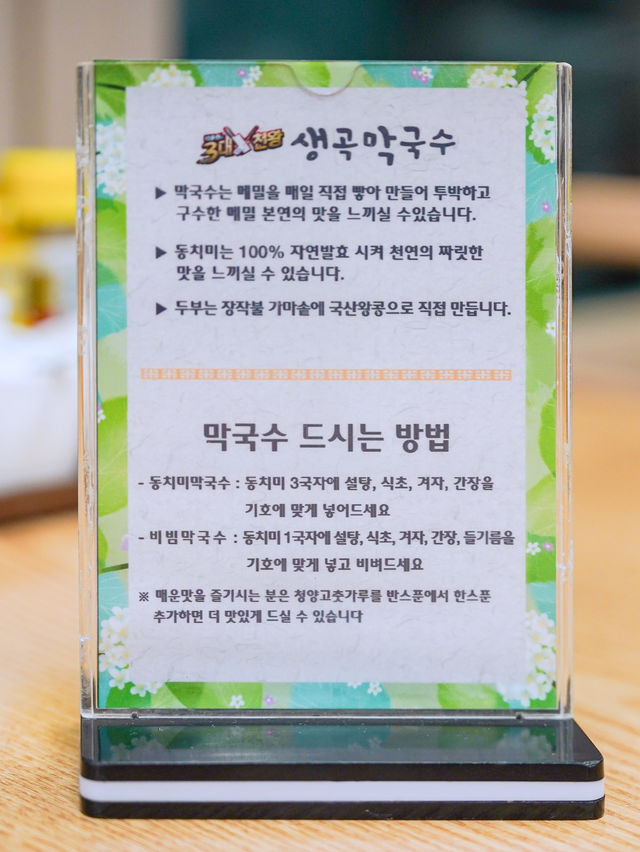 3대X천왕 생곡막국수
▶ 막국수는 메밀을 매일 직접 빻아 만들어 투박하고
구수한 메밀 본연의 맛을 느끼실 수있습니다.
▶ 동치미는 100% 자연발효 시켜 천연의 짜릿한
맛을 느끼실 수 있습니다.
▶ 두부는 장작불 가마솥에 국산왕콩으로 직접 만듭니다.
막국수 드시는 방법
- 동치미막국수 : 동치미 3국자에 설탕, 식초, 겨자, 간장을
기호에 맞게 넣어드세요
- 비빔막국수 : 동치미 1국자에 설탕, 식초, 겨자, 간장, 들기름을
기호에 맞게 넣고 비벼드세요
※ 매운맛을 즐기시는 분은 청양고춧가루를 반스푼에서 한스푼
추가하면 더 맛있게 드실 수 있습니다